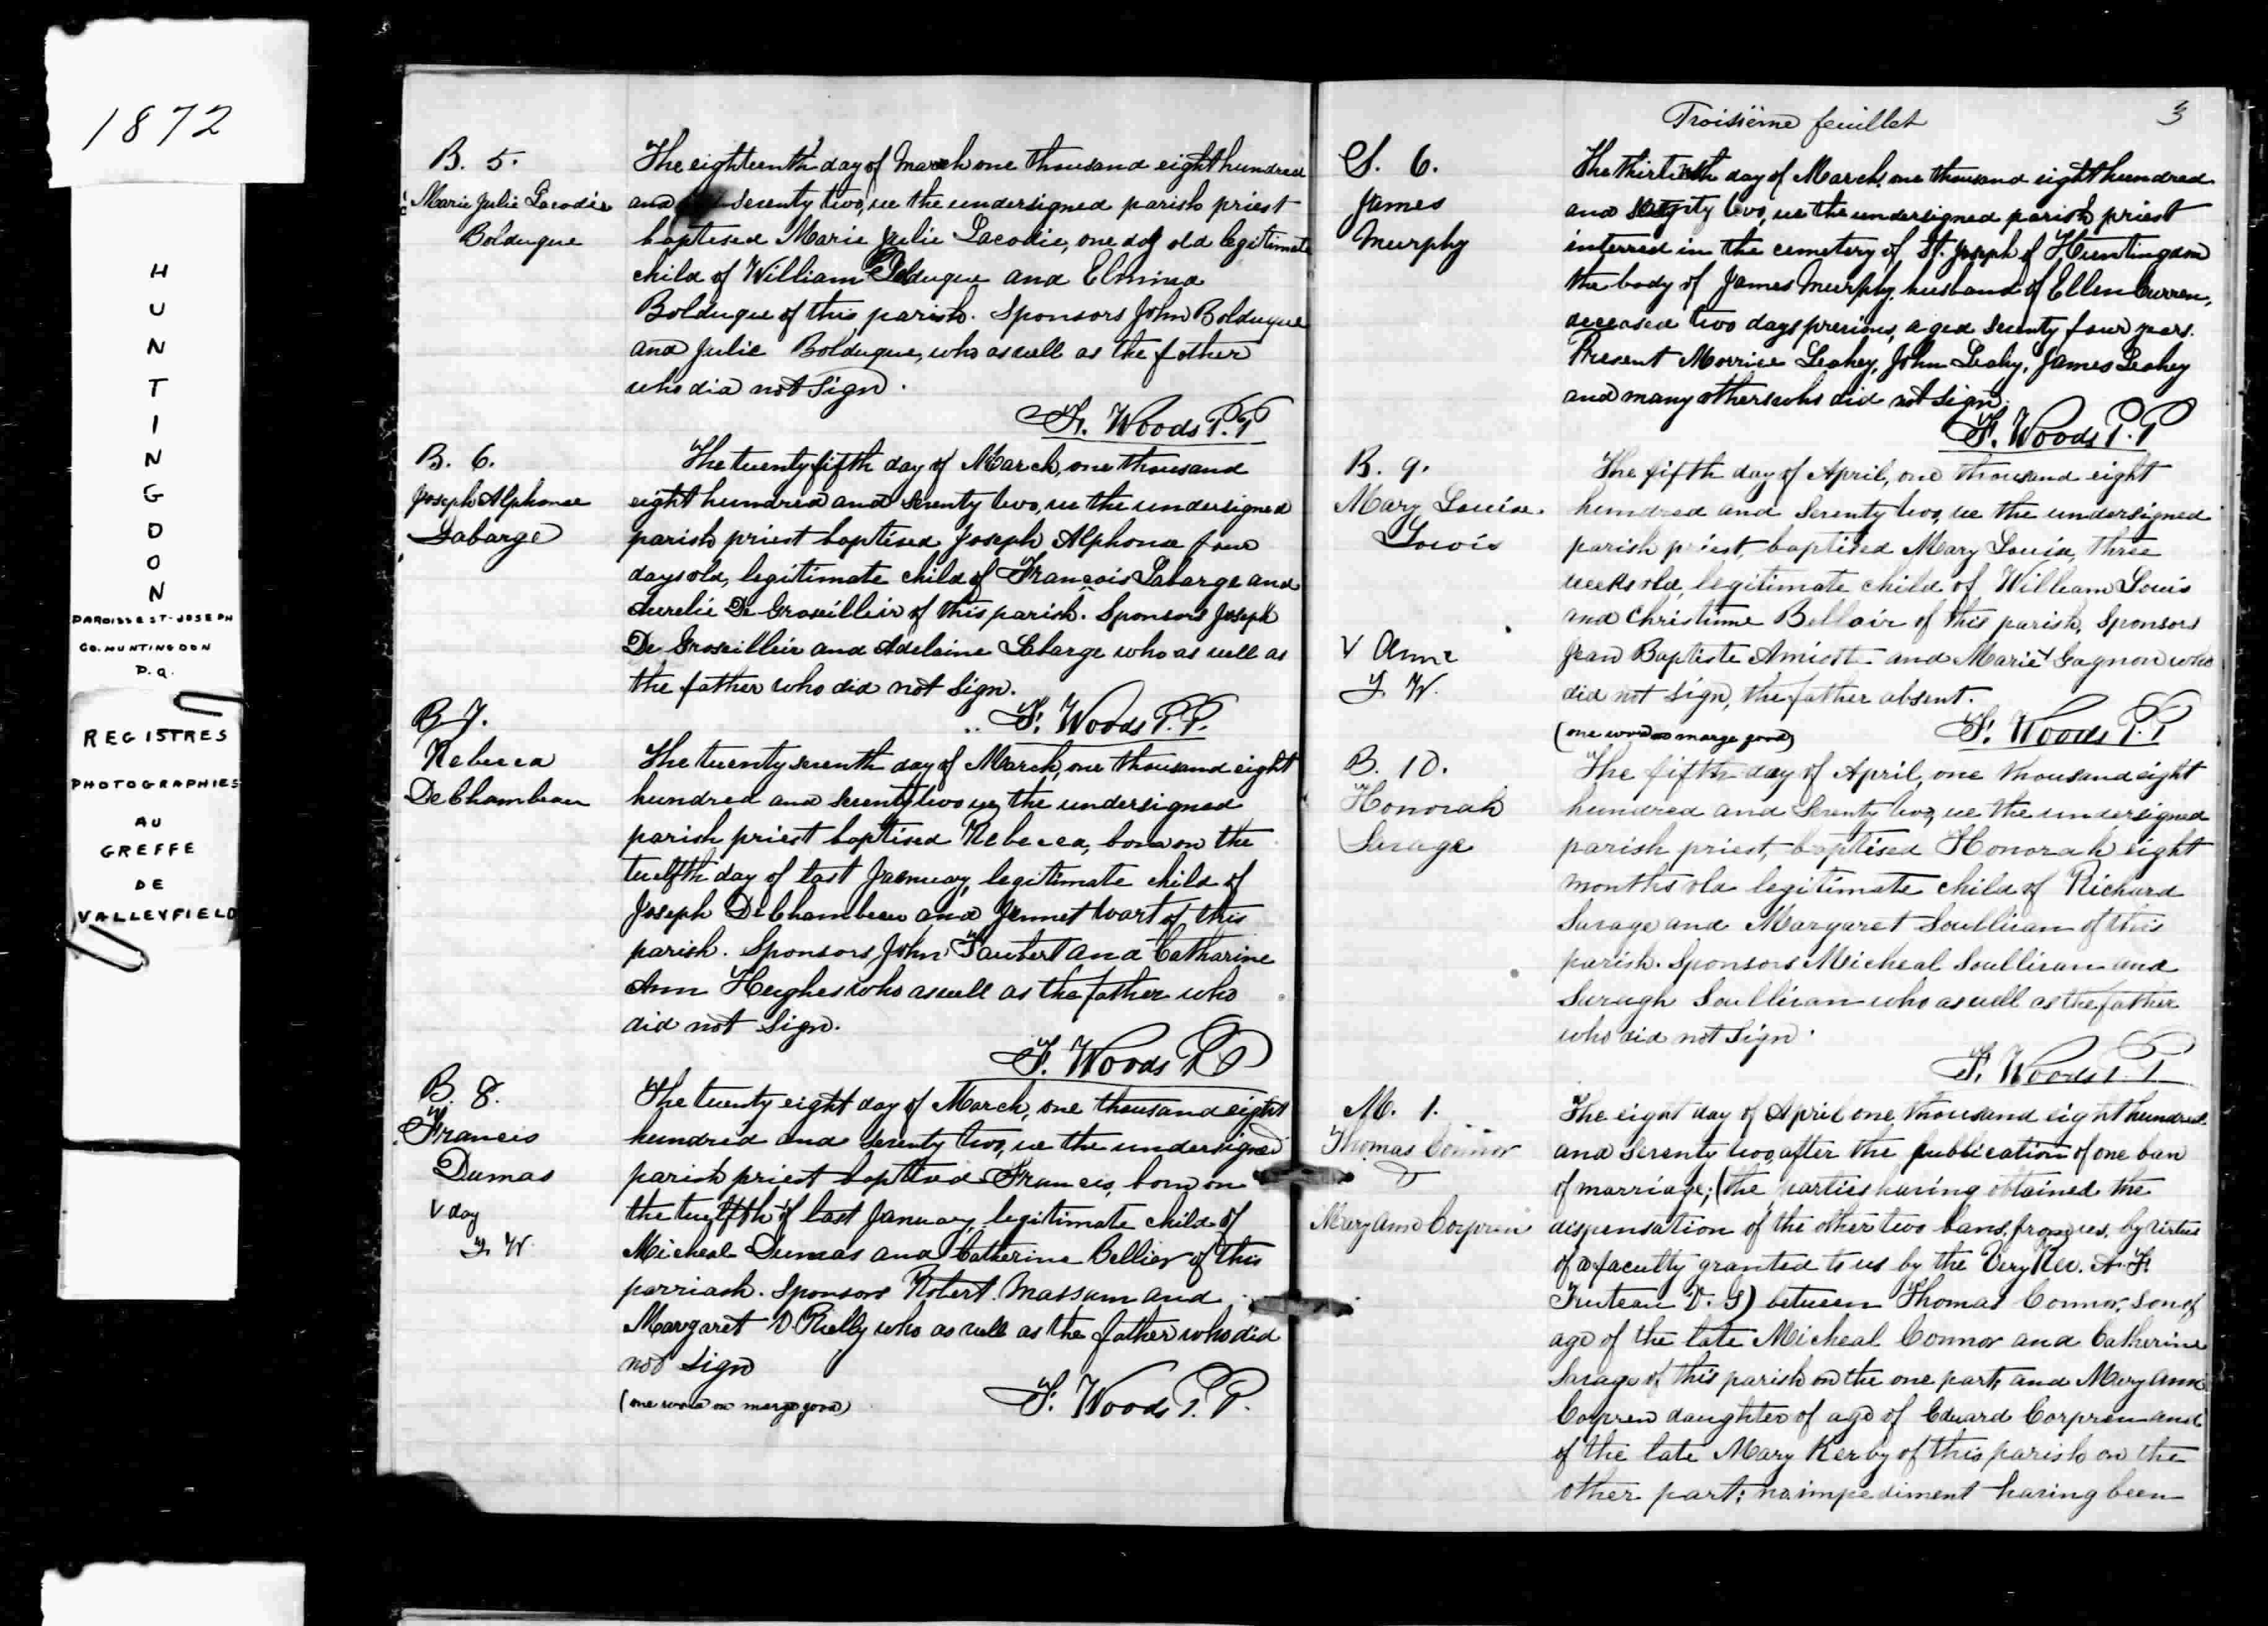 1872
HUNTINGDON
PAROISSE ST-JOSEPH
CO. HUNTINGDON
P.Q.
REGISTRES
PHOTOGRAPHIES
AU
GREFFE
DE
VALLEYFIELD
B. 5.
Marie Julie Lacodie
Bolduque
The eighteenth day of March one thousand eight hundred
and seventy two, we the undersigned parish priest
baptised Marie Julie Lacodie, one day old legitimate
child of William Bolduque and Elmina
Bolduque of this parish. Sponsors John Bolduque
and Julie Bolduque, who as well as the father
who did not sign.
F. Woods P.P
B. 6.
Joseph Alphonse
Labarge
The twenty fifth day of March, one thousand
eight hundred and seventy two, we the undersigned
parish priest baptised Joseph Alphonse four
days old, legitimate child of François Labarge and
Aurelie De Groseillier of this parish. Sponsors Joseph
De Groseillier and Adelaine Labarge who as well as
the father who did not sign.
F. Woods P.P.
B 7.
Rebecca
DeChambeau
The twenty seventh day of March, one thousand eight
hundred and seventy two we, the undersigned
parish priest baptised Rebecca, born on the
twelfth day of last January, legitimate child of
Joseph DeChambeau and Jennet Wart of this
parish. Sponsors John Faubert and Catharine
Ann Hughes who as well as the father who
did not sign.
F. Woods P.P
B. 8.
Francis
Dumas
V day
F. W.
The twenty eight day of March, one thousand eight
hundred and seventy two, we the undersigned
parish priest baptised Francis, born on
the twelfth V of last January, legitimate child of
Micheal Dumas and Catherine Bellier of this
parriash. Sponsors Robert Massum and
Margaret O Rielly who as well as the father who did
not sign
(one word on marge good)
F. Woods P.P.
Troisième feuillet
3
S. 6.
James
Murphy
The thirtieth day of March, one thousand eight hundred
and seventy two, we the undersigned parish priest
interred in the cemetery of St. Joseph of Huntingdon
the body of James Murphy, husband of Ellen Curren,
deceased two days previous, aged seventy four years.
Present Morrice Leahey, John Leahy, James Leahey
and many others who did not sign.
F. Woods P.P
B. 9.
Mary Louise
Lowis
V Anne
F. W.
The fifth day of April, one thousand eight
hundred and seventy two, we the undersigned
parish priest, baptised Mary Louise, three
weeks old, legitimate child of William Louis
and Christinne Bellair of this parish, Sponsors
Jean Baptiste Amiott and Marie V Gagnon who
did not sign, the father absent.
(one word on marge good)
F. Woods P.P
B. 10.
Honorah
Savage
The fifth day of April, one thousand eight
hundred and seventy two, we the undersigned
parish priest, baptised Honorah eight
months old legitimate child of Richard
Savage and Margaret Soullivan of this
parish. Sponsors Micheal Soullivan and
Surugh Soullivan who as well as the father
who did not sign.
F. Woods P.P
M. 1.
Thomas Connor
&
Mary Ann Corpren
The eight day of April one thousand eight hundred
and seventy two, after the publication of one ban
of marriage; (the parties having obtained the
dispensation of the other two bans, from us, by virtue
of a faculty granted to us by the Very Rev. A. F.
Truteau V. G) between Thomas Connor, son of
age of the late Micheal Connor and Catherine
Savage of this parish on the one part, and Mary Ann
Corpren daughter of age of Eduard Corpren and
of the late Mary Kerby of this parish on the
other part; no impediment having been